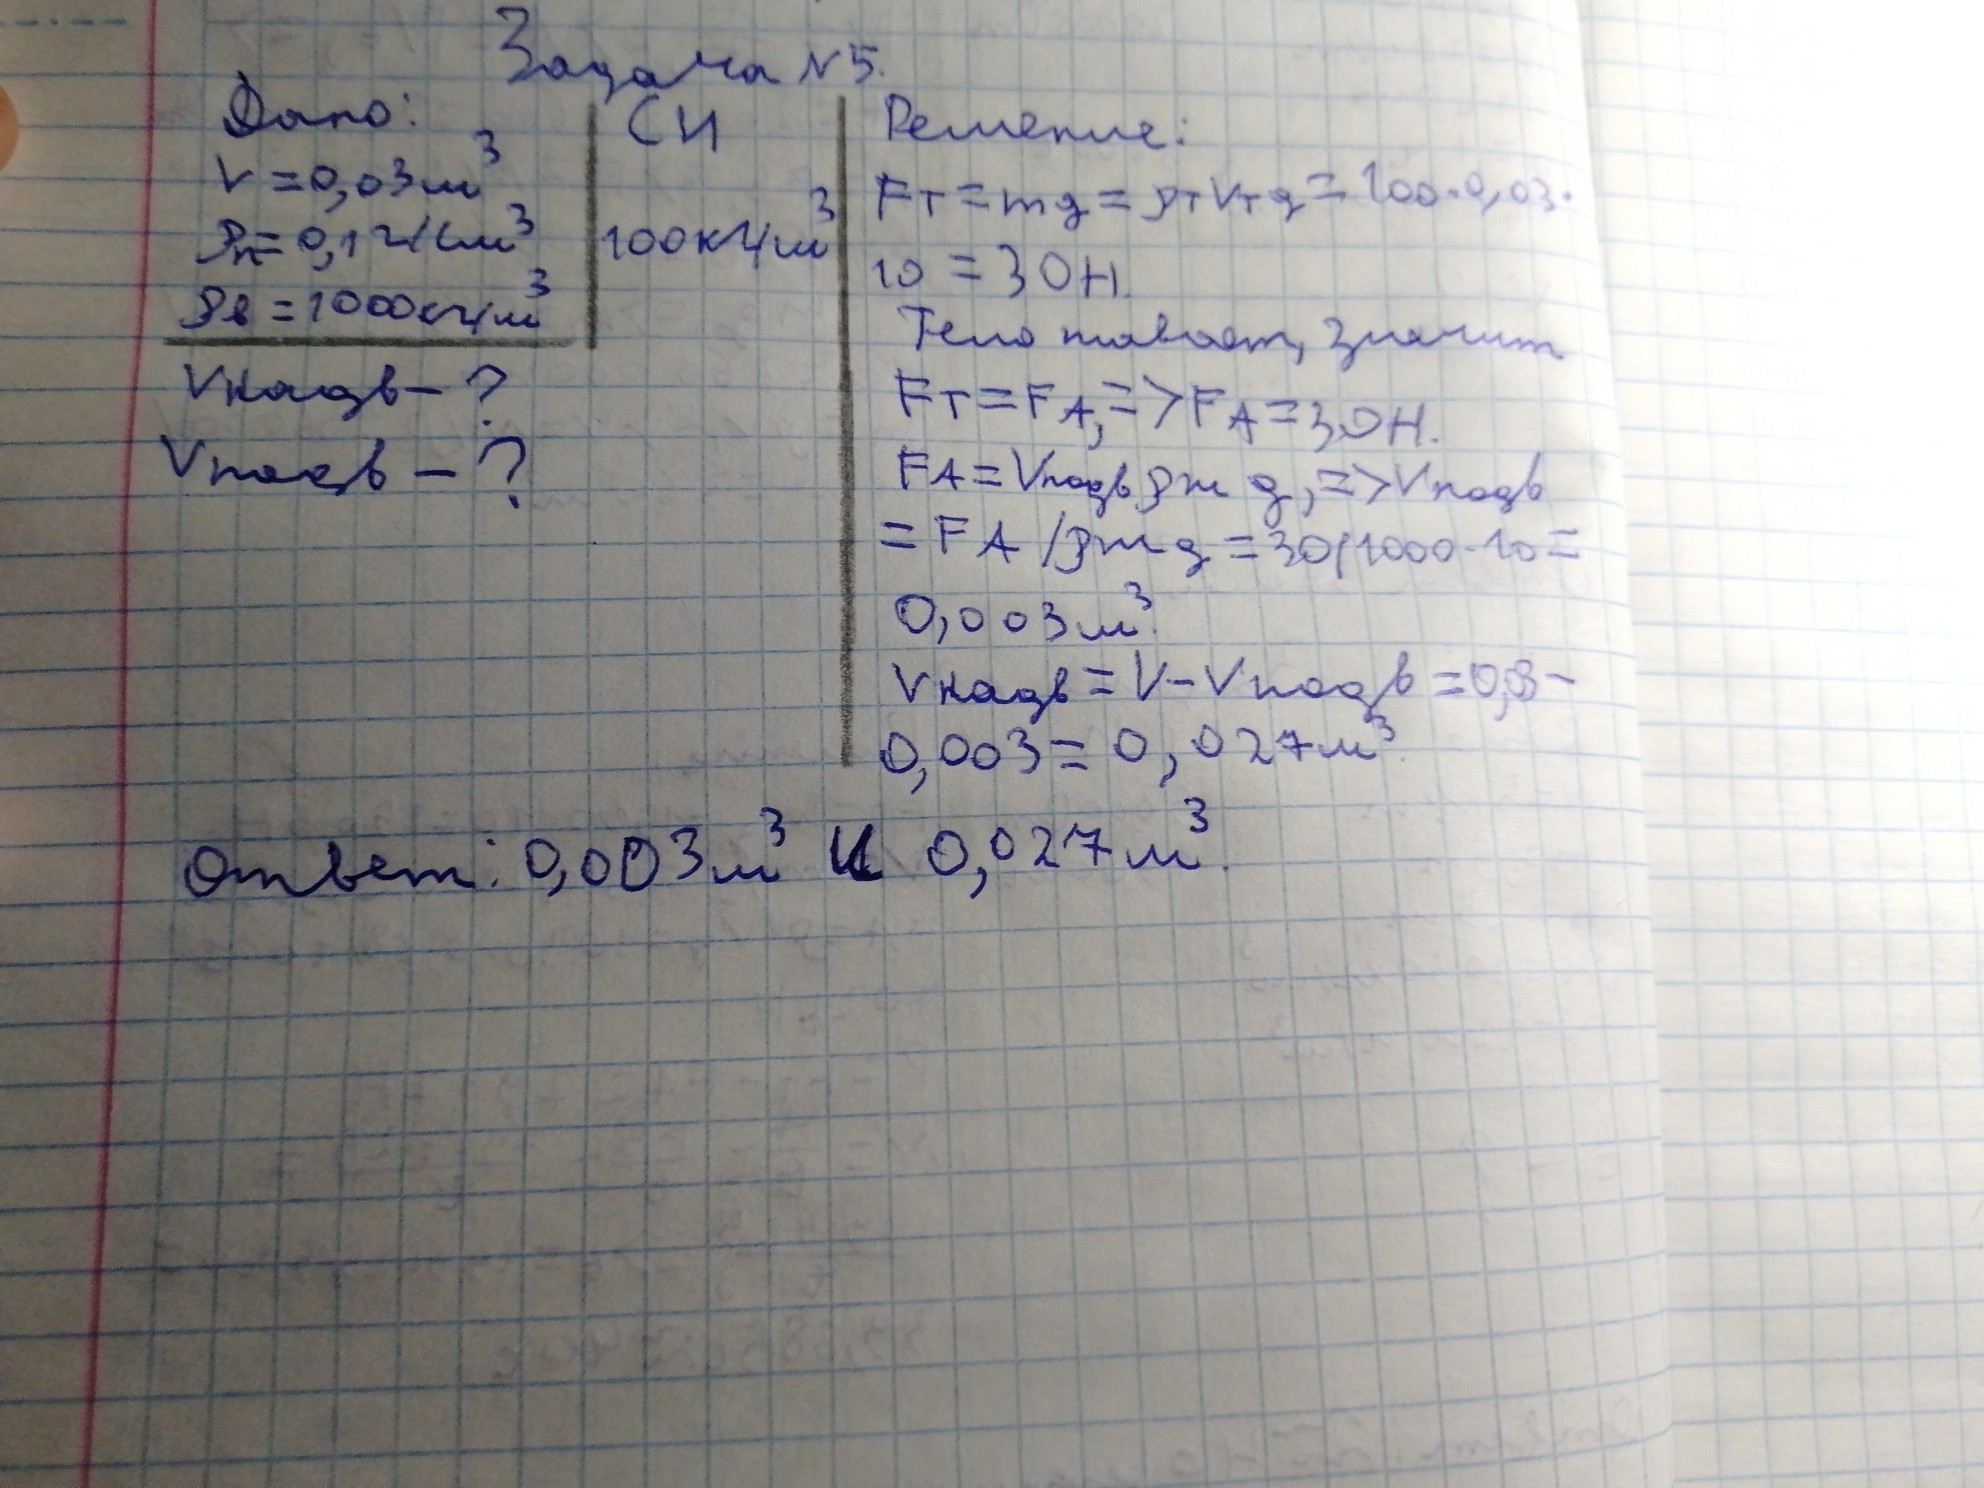 Задача №5.
Дано:
V=0,03м³
ρп=0,1г/см³
ρв=1000кг/м³
Vнадв-?
Vподв-?
СИ
100кг/м³
Решение:
Fт=mg=ρтVтg=100·0,03·
10=30Н.
Тело плавает, значит
Fт=FA,=>FA=30Н.
FA=Vподвρжg,=>Vподв
=FA/ρжg=30/1000·10=
0,003м³.
Vнадв=V-Vподв=0,3-
0,003=0,027м³.
Ответ: 0,003м³ и 0,027м³.